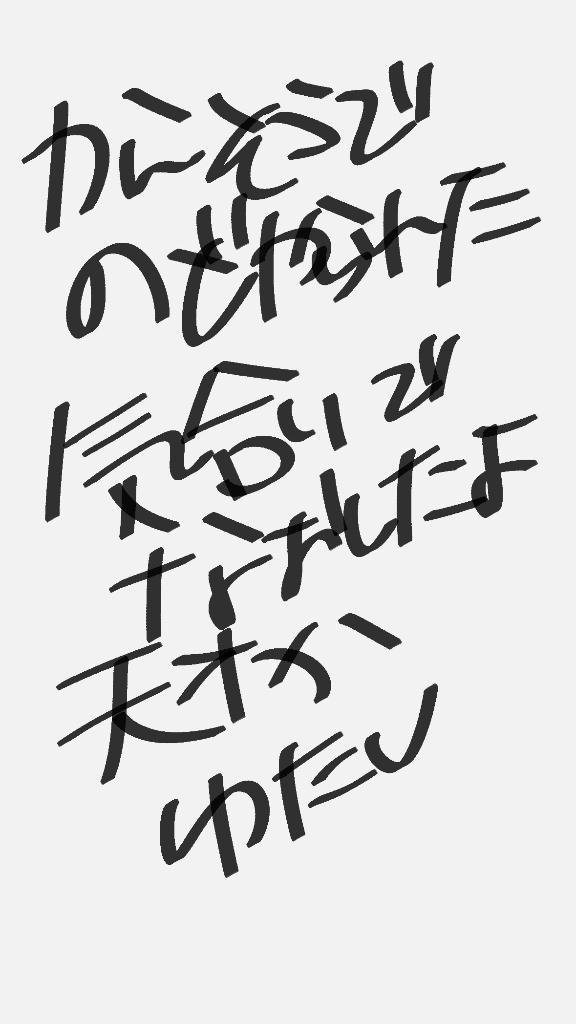 かんそうで
のどやられた
気合いで
なおしたよ
天才か
ゆたし